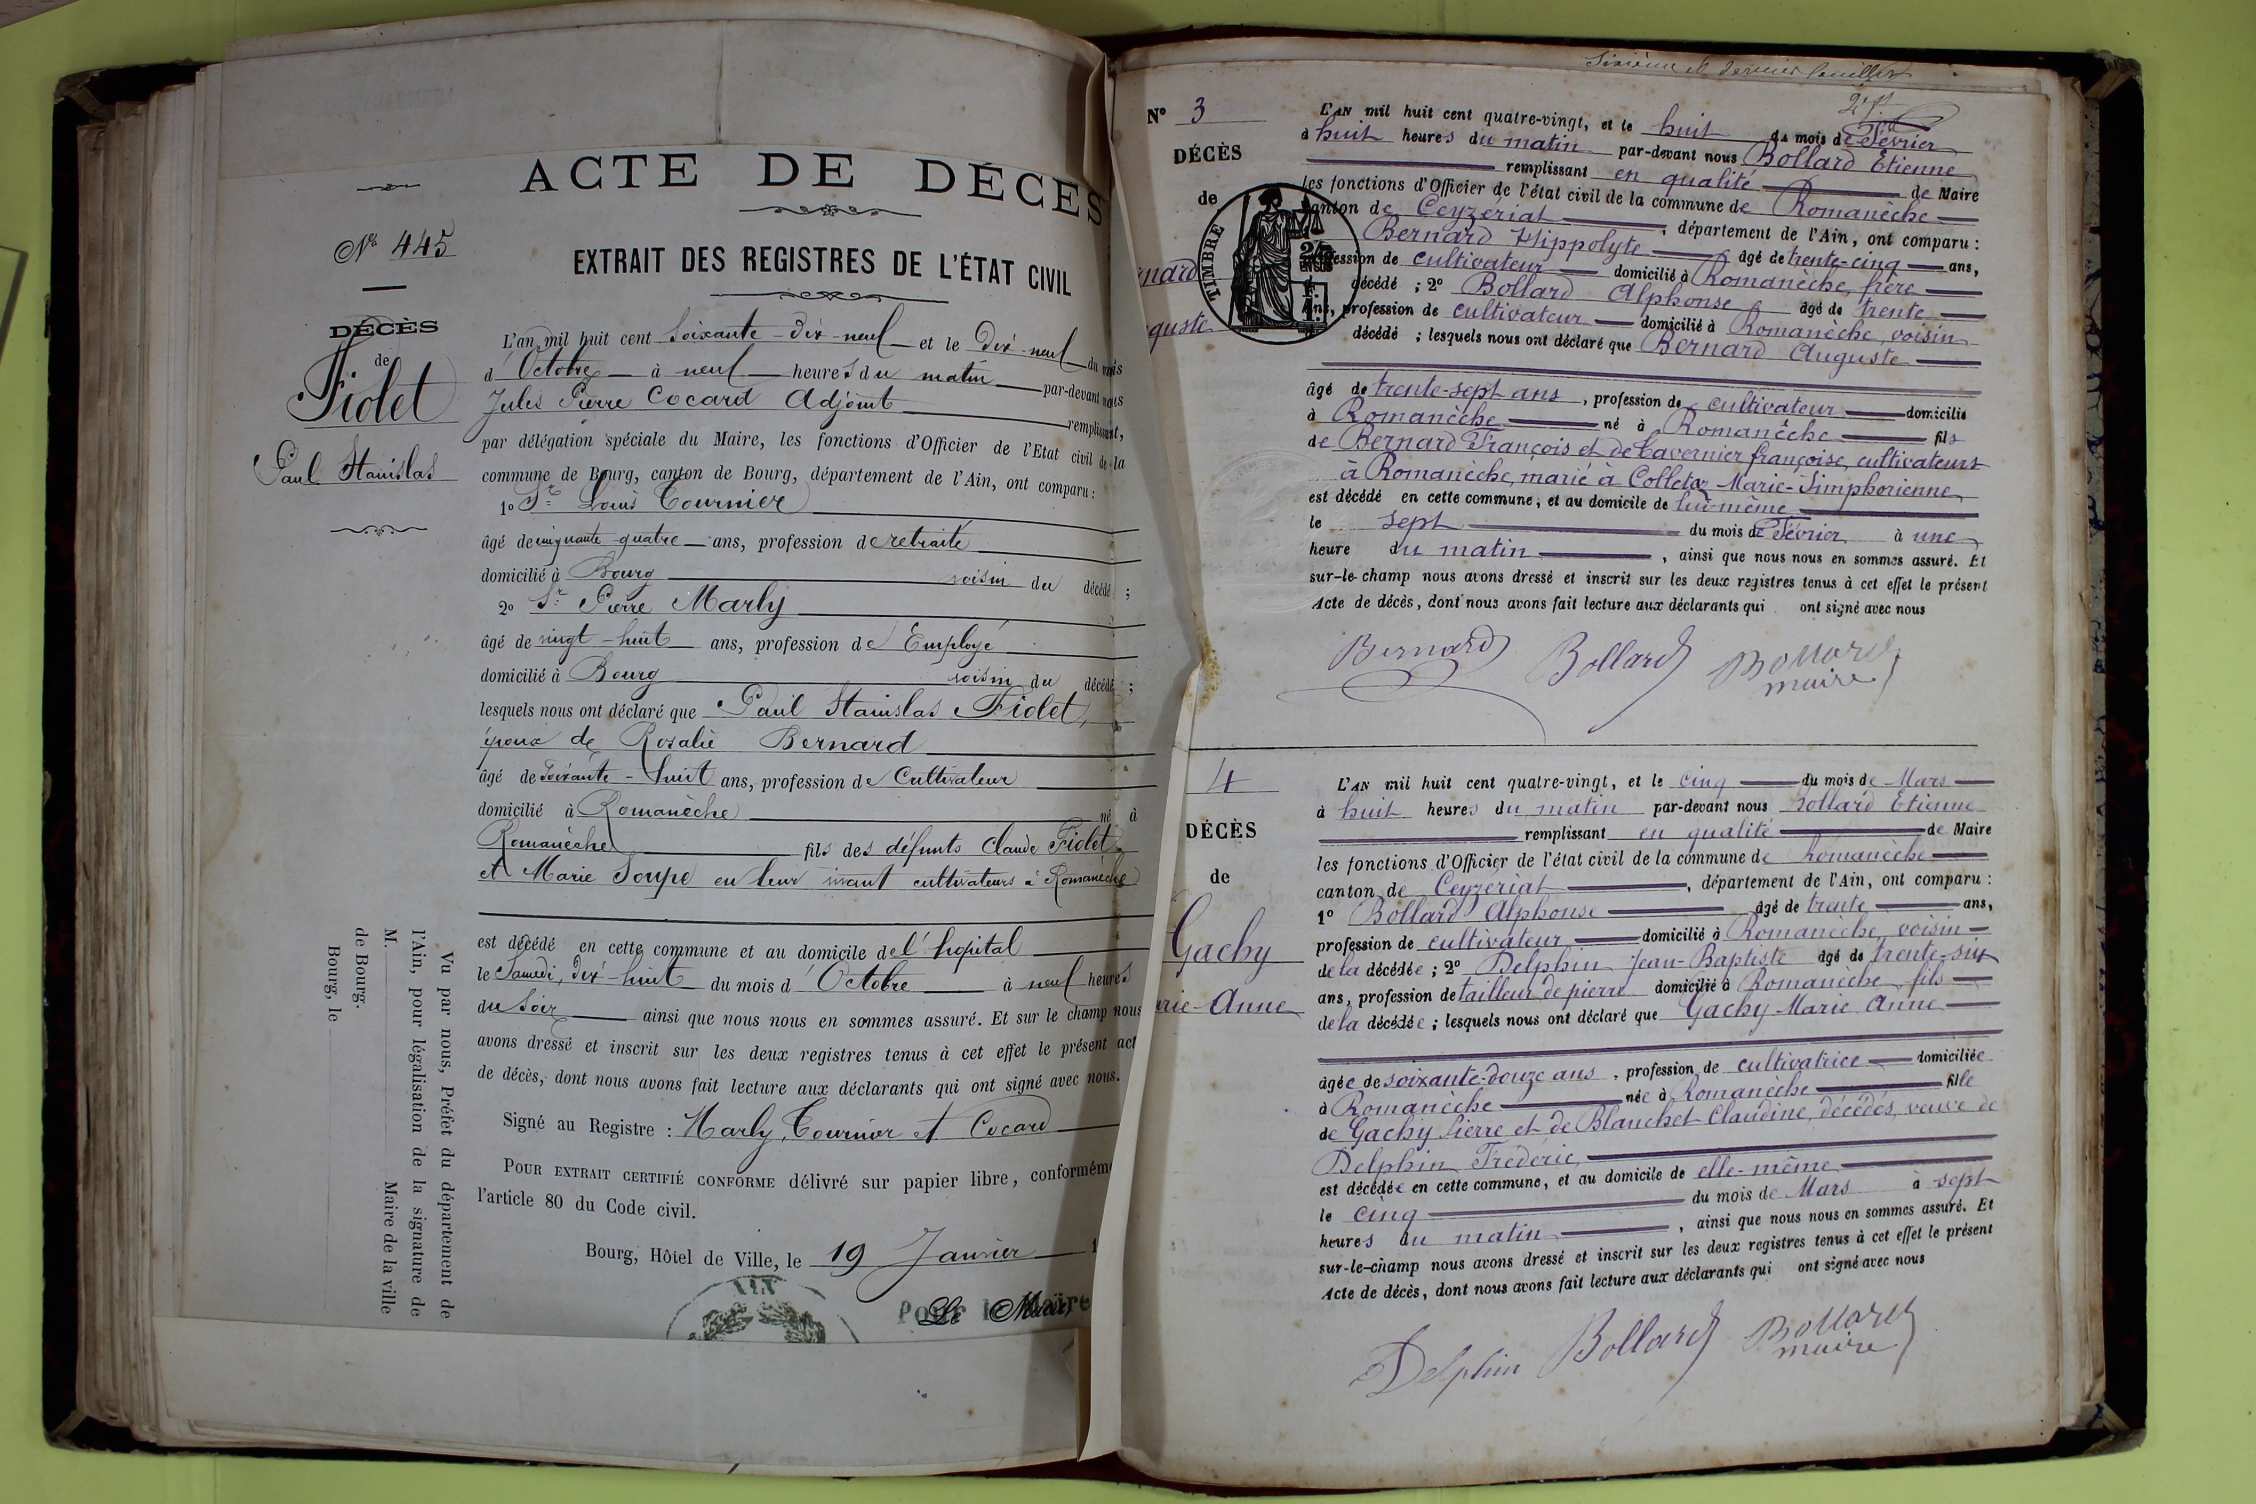 ACTE DE DÉCÈS
Nº 445
EXTRAIT DES REGISTRES DE L'ÉTAT CIVIL
DÉCÈS
de
Fiolet
Paul Stanislas
L'an mil huit cent soixante-dix-neuf et le dix-neuf du mois
d'Octobre à neuf heures du matin par-devant nous
Jules Pierre Cocard Adjoint remplissant,
par délégation spéciale du Maire, les fonctions d'Officier de l'Etat civil de la
commune de Bourg, canton de Bourg, département de l'Ain, ont comparu :
1º Sr Louis Tournier
âgé de cinquante-quatre ans, profession de retraité
domicilié à Bourg voisin du décédé ;
2º Sr Pierre Marly
âgé de vingt-huit ans, profession de Employé
domicilié à Bourg voisin du décédé ;
lesquels nous ont déclaré que Paul Stanislas Fiolet,
époux de Rosalie Bernard
âgé de soixante-huit ans, profession de Cultivateur
domicilié à Romanèche né à
Romanèche fils des défunts Claude Fiolet
et Marie Soupe en leur vivant cultivateurs à Romanèche
est décédé en cette commune et au domicile de l'hôpital
le Samedi, dix-huit du mois d'Octobre à neuf heures
du soir ainsi que nous nous en sommes assuré. Et sur le champ nous
avons dressé et inscrit sur les deux registres tenus à cet effet le présent act
de décès, dont nous avons fait lecture aux déclarants qui ont signé avec nous.
Signé au Registre : Marly, Tournier et Cocard
POUR EXTRAIT CERTIFIÉ CONFORME délivré sur papier libre, conformémen
l'article 80 du Code civil.
Bourg, Hôtel de Ville, le 19 Janvier 1
Pour le Maire
Le Maire
AIN
Vu par nous, Préfet du département de
l'Ain, pour légalisation de la signature de
M. Maire de la ville
de Bourg.
Bourg, le
Sixième et dernier feuillet
Nº 3
DÉCÈS
de
rnard
guste
TIMBRE
L'AN mil huit cent quatre-vingt, et le huit du mois de Février
à huit heures du matin par-devant nous Bollard Etienne
remplissant en qualité de Maire
les fonctions d'Officier de l'état civil de la commune de Romanèche
canton de Ceyzériat, département de l'Ain, ont comparu :
Bernard Hippolyte âgé de trente-cinq ans,
fession de cultivateur domicilié à Romanèche, frère
décédé ; 2º Bollard Alphonse âgé de trente
ans, profession de cultivateur domicilié à Romanèche, voisin
décédé ; lesquels nous ont déclaré que Bernard Auguste
âgé de trente-sept ans, profession de cultivateur domicilié
à Romanèche né à Romanèche fils
de Bernard François et de Cavernier françoise, cultivateurs
à Romanèche, marié à Colletaz Marie-Simphorienne,
est décédé en cette commune, et au domicile de lui-même
le sept du mois de Février à une
heure du matin, ainsi que nous nous en sommes assuré. Et
sur-le-champ nous avons dressé et inscrit sur les deux registres tenus à cet effet le présent
Acte de décès, dont nous avons fait lecture aux déclarants qui ont signé avec nous
Bernard Bollard Bollard
maire
4
DÉCÈS
de
Gachy
rie-Anne
L'AN mil huit cent quatre-vingt, et le cinq du mois de Mars
à huit heures du matin par-devant nous Bollard Etienne
remplissant en qualité de Maire
les fonctions d'Officier de l'état civil de la commune de Romanèche
canton de Ceyzériat, département de l'Ain, ont comparu :
1º Bollard Alphonse âgé de trente ans,
profession de cultivateur domicilié à Romanèche, voisin
de la décédée ; 2º Delphin Jean-Baptiste âgé de trente-six
ans, profession de tailleur de pierre domicilié à Romanèche, fils
de la décédée ; lesquels nous ont déclaré que Gachy Marie Anne
âgée de soixante-douze ans, profession de cultivatrice domiciliée
à Romanèche née à Romanèche fille
de Gachy Pierre et de Blanchet Claudine, décédés, veuve de
Delphin Frédéric,
est décédée en cette commune, et au domicile de elle-même
le cinq du mois de Mars à sept
heures du matin, ainsi que nous nous en sommes assuré. Et
sur-le-champ nous avons dressé et inscrit sur les deux registres tenus à cet effet le présent
Acte de décès, dont nous avons fait lecture aux déclarants qui ont signé avec nous
Delphin Bollard Bollard
maire